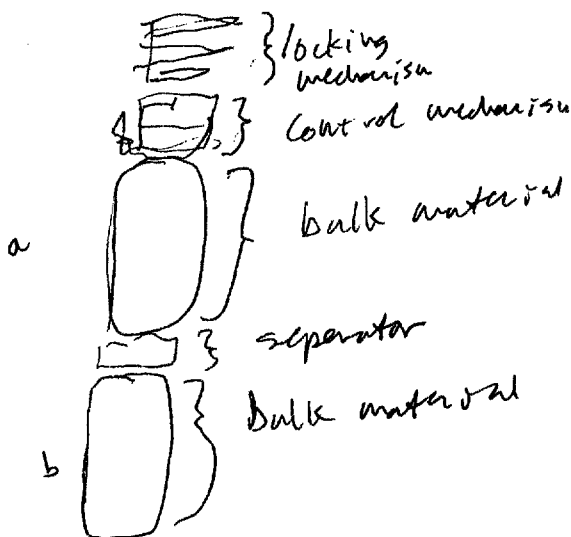 locking
mechanism
control mechanism
bulk material
a
seperator
bulk material
b